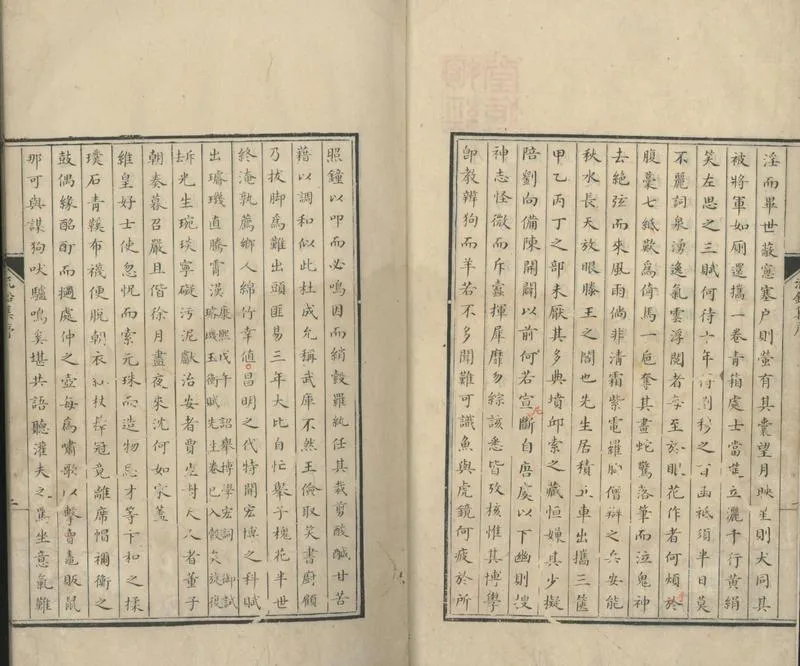 淫而畢世蔽窻塞户則萤有其囊望月映𭥍則犬同其
被將軍如厠還攜一卷青箱處士當筵立灑千行黄絹
笑左思之三賦何待十年 百函衹須半日莫
不麗詞泉湧逸氣雲浮閱者每至於眼花作者何煩於
腹稾七紙歘爲倚馬一巵奪其畫蛇驚落筆而泣鬼神
去絶弦而來風雨倘非清霜紫電羅胸僧辯之兵安能
秋水長天放眼滕王之閣也先生居積五車出攜三篋
甲乙丙丁之部未厭其多典墳邱索之藏恒嫌其少擬
陪劉向備陳開闢以前何若宣斷自唐虞以下幽則搜
神志怪微而斥蠧揮犀靡勿綜該悉皆攷核惟其博學
卽教辨狗而羊若不多聞難可識魚與虎鏡何疲於所
照鐘以叩而必鳴因而綃縠羅紈任其裁剪酸醎甘苦
藉以調和似此杜成允稱武庫不然王儉取笑書廚顧
乃拔脚爲難出頭匪易三年大比自忙舉子槐花半世
終淹孰薦鄉人綿竹幸值昌明之代特開宏博之科賦
出璿璣直騰霄漢康熙戊午詔舉博學宏詞御試璿璣玉衡賦先生卷已入彀矣旋復
斥光生琬琰寧礙污泥獻治安者賈生對天人者董子
朝奏暮召嚴且偕徐月晝夜來沈何如宋蓋
維皇好士使忽怳而索元珠而造物忌才等卞和之揉
璞石青鞵布襪便脱朝衣 杖 冠竟離席帽禰衡之
鼓偶緣酩酊而撾處仲之壺每爲嘯歌以擊會黿販鼠
那可與謀狗吠驢鳴奚堪共語聽灌夫之罵坐意氣難